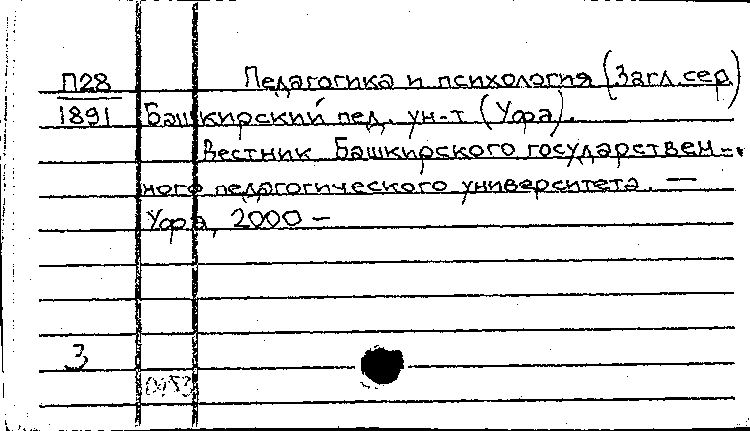 П28 Педагогика и психология (Загл. сер)
1891 Башкирский пед. ун-т (Уфа).
Вестник Башкирского государствен-
ного педагогического университета. —
Уфа, 2000 –
3